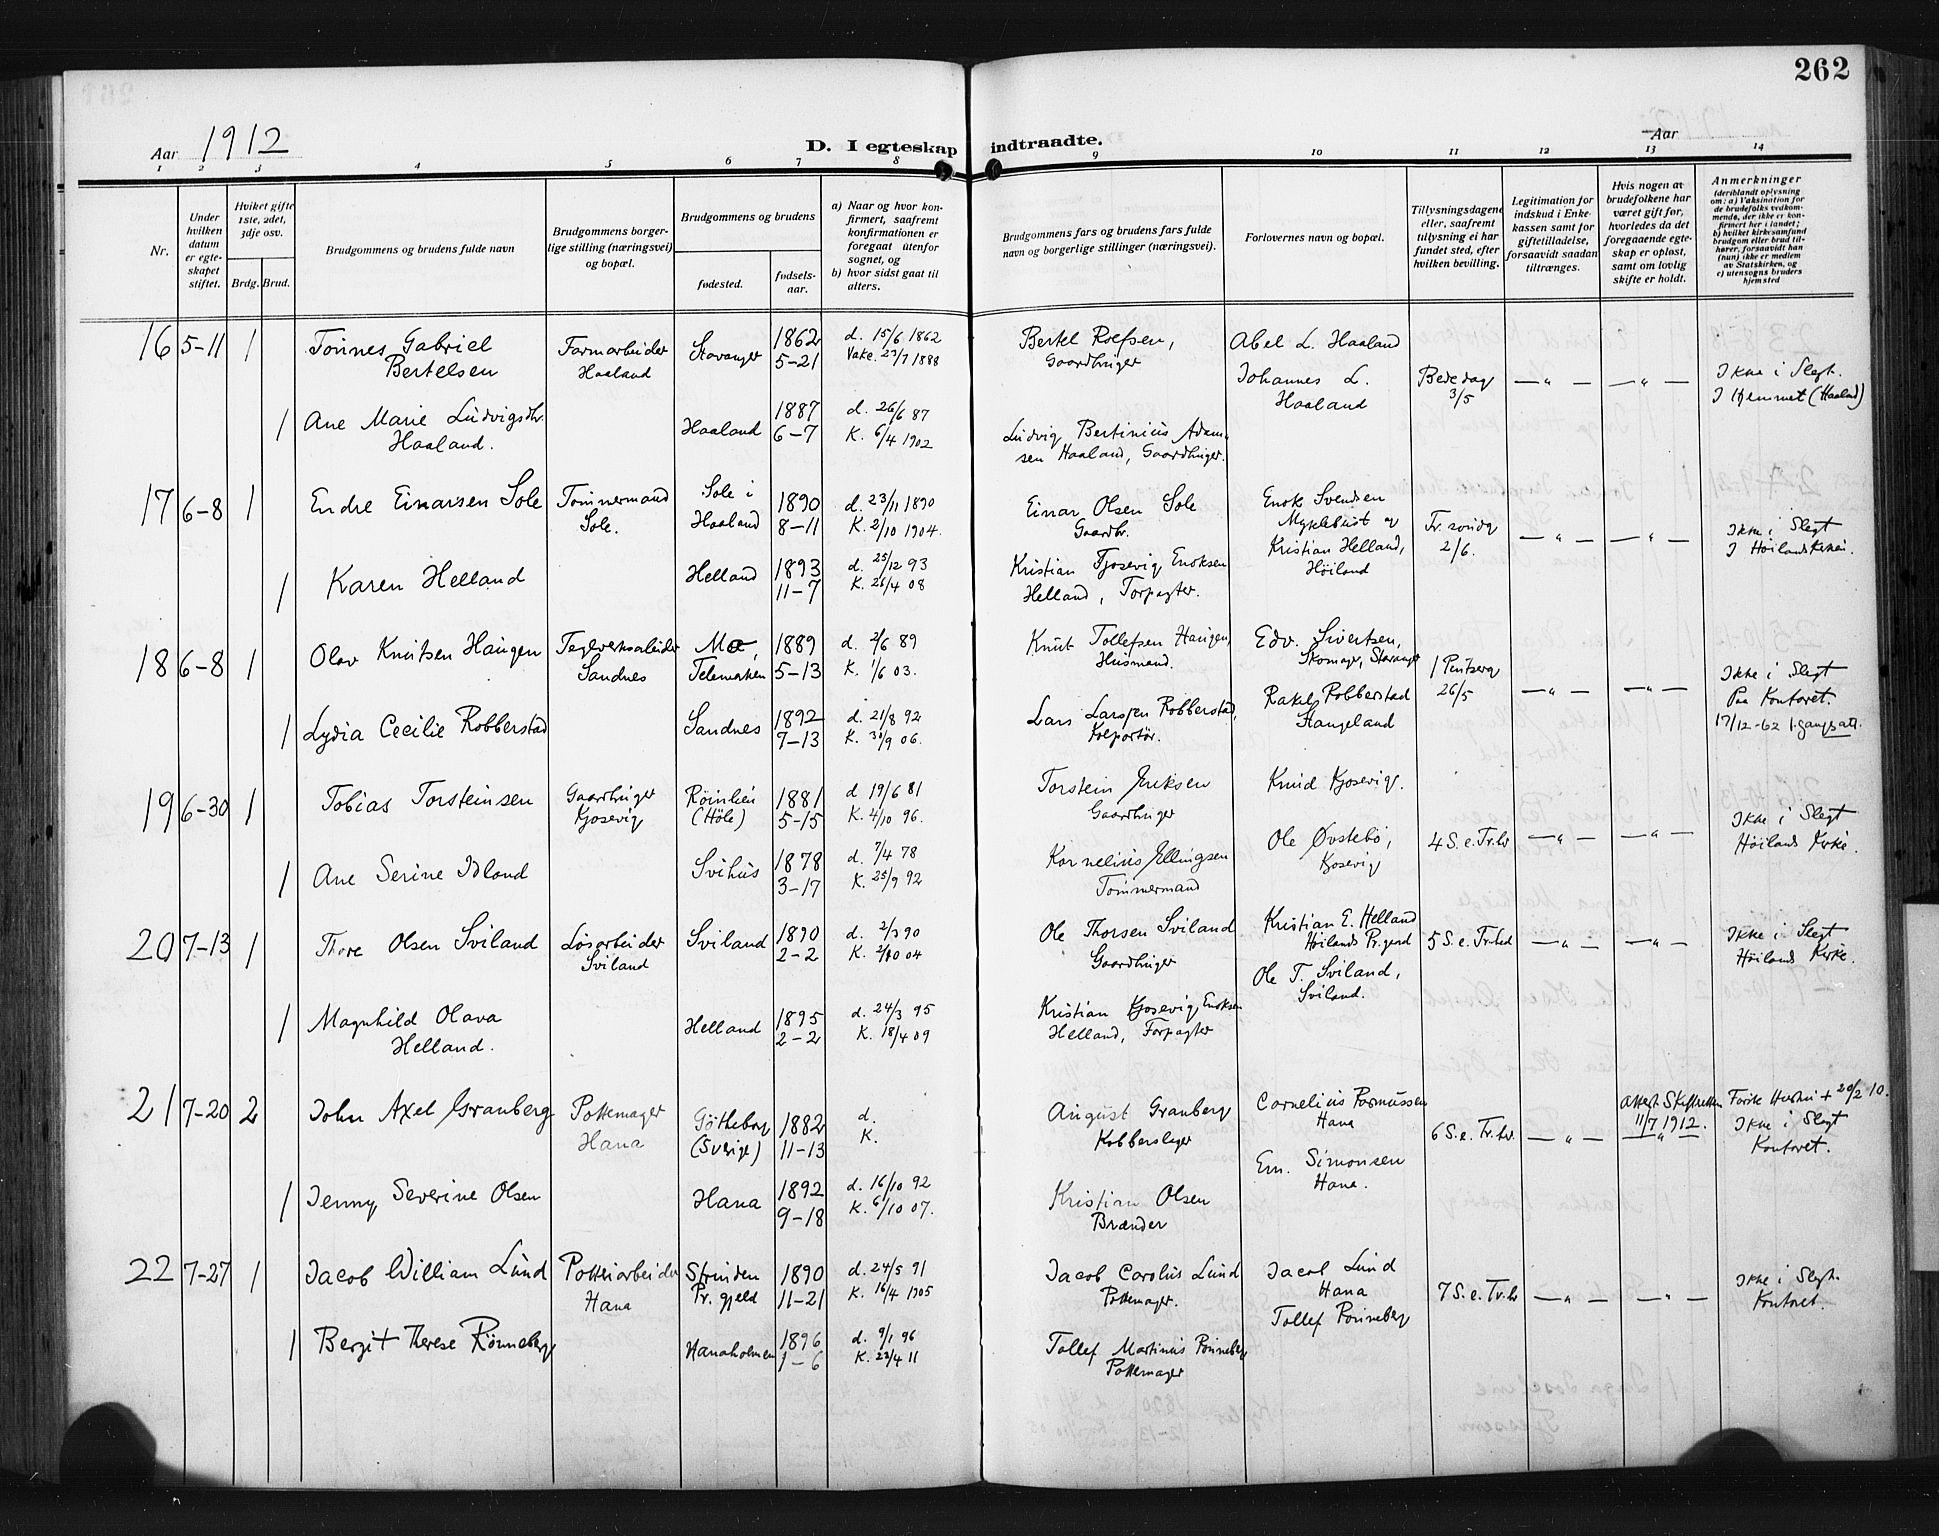 262
Aar 1912
D. I egteskap indtraadte.
Aar
1 2 3 4 5 6 7 8 9 10 11 12 13 14
Nr.
Under hvilken datum er egteskapet stiftet.
Hviket gifte 1ste, 2det, 3dje osv.
Brdg. Brud.
Brudgommens og brudens fulde navn
Brudgommens borgerlige stilling (næringsvei) og bopæl.
Brudgommens og brudens
fødested.
fødselsaar.
a) Naar og hvor konfirmert, saafremt konfirmationen er foregaat utenfor sognet, og
b) hvor sidst gaat til alters.
Brudgommens fars og brudens fars fulde navn og borgerlige stillinger (næringsvei).
Forlovernes navn og bopæl.
Tillysningsdagene eller, saafremt tillysning ei har fundet sted, efter hvilken bevilling.
Legitimation for indskud i Enkekassen samt for giftetilladelse, forsaavidt saadan tiltrænges.
Hvis nogen av brudefolkene har været gift før, hvorledes da det foregaaende egteskap er opløst, samt om lovlig skifte er holdt.
Anmerkninger
(deriblandt oplysning om: a) Vaksination for de brudefolks vedkommende, der ikke er konfirmert her i landet; b) hvilket kirkesamfund brudgom eller brud tilhører, forsaavidt han (hun) ikke er medlem av Statskirken, og c) utensogns bruders hjemsted
16 5-11 1 Tönnes Gabriel Bertelsen
Farmarbeider Haaland
Stavanger
1862 5-21
d. 15/6 1862
Vakc. 23/7 1888
Bertel Roefsen, Gaardbruger
Abel L. Haaland
Johannes L. Haaland
Bededag 3/5
— " — — " —
Ikke i Slegt.
I Hjemmet (Haaland)
1 Ane Marie Ludvigsdtr. Haaland.
Haaland
1887 6-7
d. 26/6 87
K. 6/4 1902
Ludvig Bertinius Adamsen Haaland, Gaardbruger.
17 6-8 1 Endre Einarsen Sole
Tömmermand Sole.
Sole i Haaland
1890 8-11
d. 23/11 1890
K. 2/10 1904.
Einar Olsen Sole Gaardbr.
Enok Svendsen Myklebust og
Kristian Helland, Höiland
Tr. söndg 2/6.
— " — — " —
Ikke i Slegt
I Höilands Kirke.
1 Karen Helland
Helland
1893 11-7
d. 25/12 93
K. 26/4 08
Kristian Tjosevig Enoksen Helland, Forpagter.
18 6-8 1 Olav Knutsen Haugen
Teglverksarbeider Sandnes
Mo, Telemarken
1889 5-13
d. 2/6 89
K. 1/6 03.
Knut Tollefsen Haugen, Husmand.
Edv. Sivertsen, Skomager, Stavanger
Rakel Robberstad Stangeland
1 Pentserg 26/5
— " — — " —
Ikke i Slegt
Paa Kontoret.
17/12-62 1. gangs att.
1 Lydia Cecilie Robberstad
Sandnes
1892 7-13
d. 21/8 92
K. 30/9 06.
Lars Larsen Robberstad, Kolportör.
19 6-30 1 Tobias Torsteinsen
Gaardbruger Kjosevig
(Höle)
1881 5-15
d 19/6 81
K. 4/10 96.
Torstein Eriksen Gaardbruger
Knud Kjosevig.
Ole Övstebö, Kjosevig
4 S. e. Tr.hv
— " — — " —
Ikke i Slegt
Höilands Kirke.
1 Ane Serine Idland
Svihus
1878 3-17
d. 7/4 78
K. 25/9 92
Kornelius Ellingsen Tömmermand
20 7-13 1 Thore Olsen Sviland
Lösarbeider Sviland
Sviland
1890 2-2
d. 2/3 90
K. 2/10 04
Ole Thorsen Sviland Gaardbruger
Kristian E. Helland Höilands Pr.gaard
Ole T. Sviland, Sviland.
5 S. e. Tr.hed
— " — — " —
Ikke i Slegt
Höilands Kirke.
1 Magnhild Olava Helland.
Helland
1895 2-2
d. 24/3 95
K. 18/4 09
Kristian Kjosevig Enoksen Helland, Forpagter
21 7-20 2 John Axel Granberg
Pottemager Hana
Götheborg (Sverige)
1882 11-13
d.
K.
August Granberg Kobberslager
Cornelius Rasmussen Hana
Em. Simonsen Hana.
6 S. e. Tr.hv.
— " —
Attest Skifteretten 11/7 1912.
— " —
Forste Hustru + 20/2 10.
Ikke i Slegt
Kontoret.
1 Jenny Severine Olsen
Hana
1892 9-18
d. 16/10 92
K. 6/10 07.
Kristian Olsen Brænder
22 7-27 1 Jacob William Lund
Potteriarbeider Hana
Strinden Pr. gjeld
1890 11-21
d. 24/5 91
K. 16/4 1905
Jacob Carolus Lund Pottemager.
Jacob Lund Hana
Tollef Rönneberg
7 S. e. Tr.hv
— " — — " —
Ikke i Slegt.
Kontoret.
1 Bergit Therese Rönneberg
Hanaholmen
1896 1-6
d. 9/1 96
K. 23/4 11
Tollef Martinus Rönneberg Pottemager